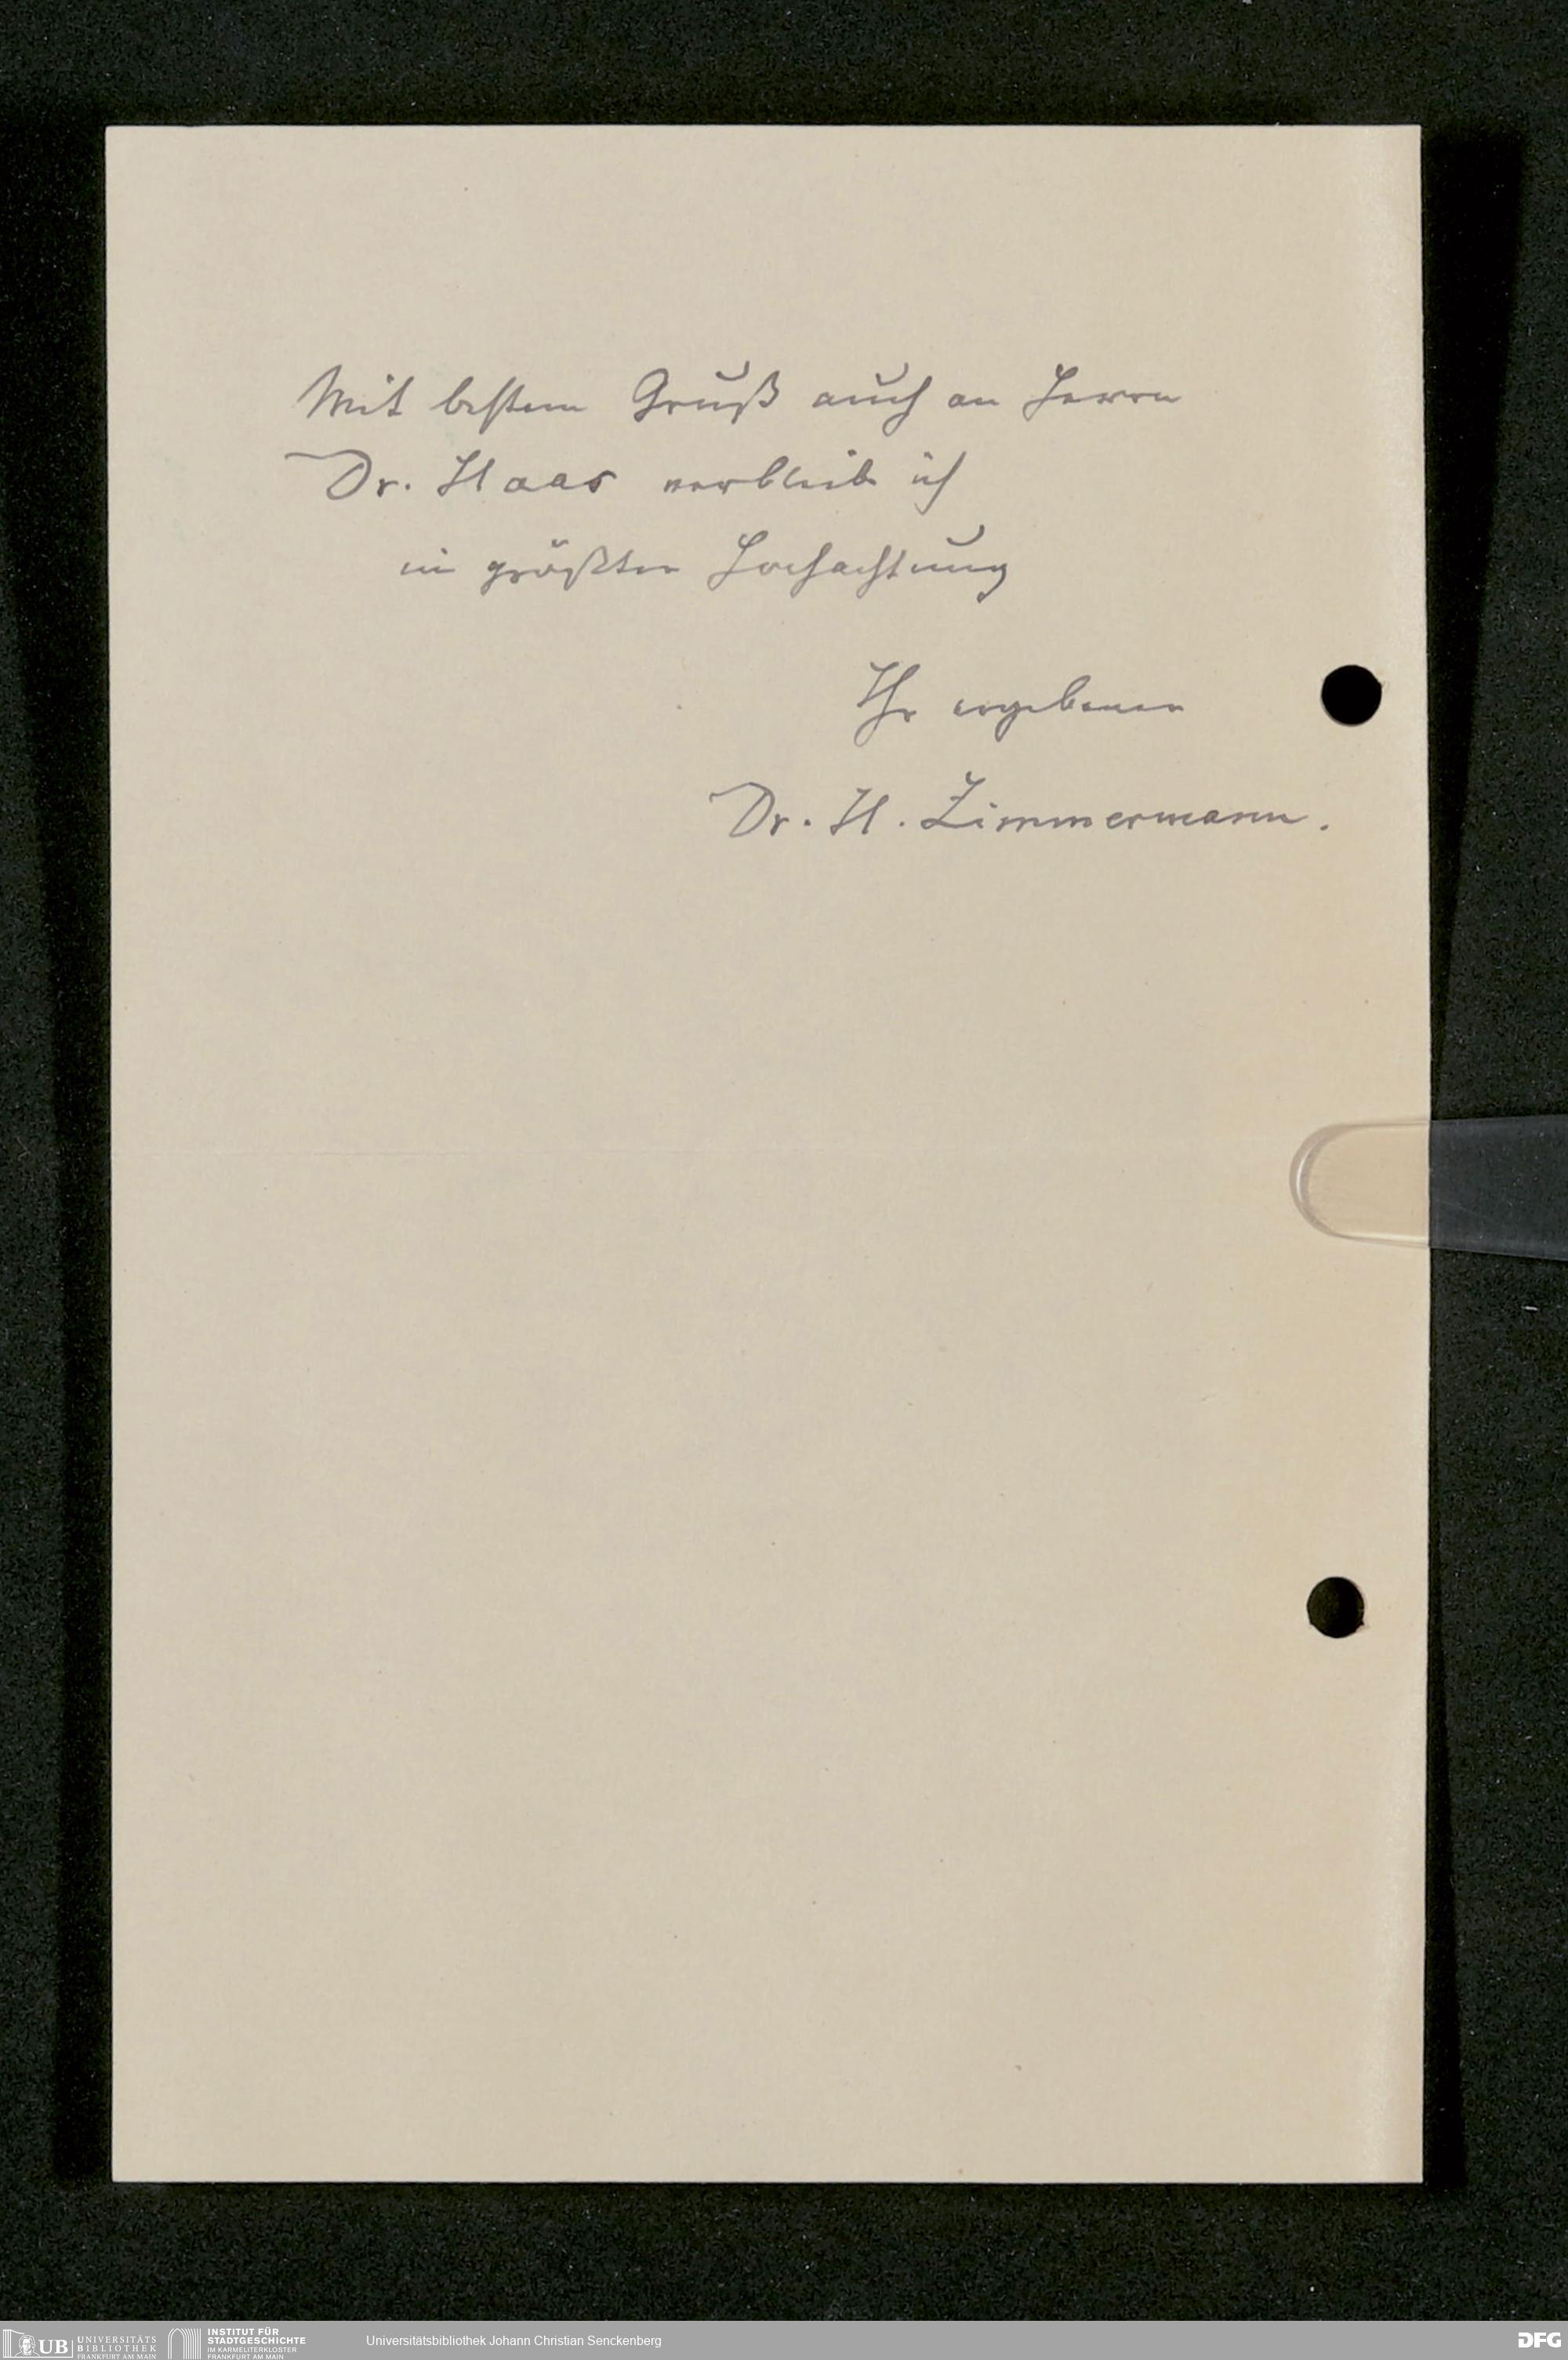 Mit bestem Gruß auch an Herrn
Dr. Haas verbleibe ich
in größter Hochachtung
Ihr ergebener
Dr. H. Zimmermann.
UB UNIVERSITÄTS
BIBLIOTHEK
FRANKFURT AM MAIN
INSTITUT FÜR
STADTGESCHICHTE
IM KARMELITERKLOSTER
FRANKFURT AM MAIN
Universitätsbibliothek Johann Christian Senckenberg
DFG